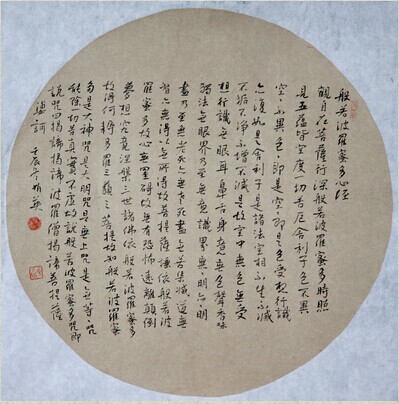 般若波羅蜜多心经
觀自在菩薩行深般若波羅蜜多時照
見五蘊皆空度一切苦厄舍利子色不異
空空不異色色即是空空即是色受想行識
亦復如是舍利子是諸法空相不生不滅
不垢不淨不增不減是故空中無色無受
想行識無眼耳鼻舌身意無色聲香味
觸法無眼界乃至無意識界無無明亦無無明
盡乃至無老死亦無老死盡無苦集滅道無
智亦無得以無所得故菩提薩埵依般若波
羅蜜多故心無罣礙故無有恐怖遠離顛倒
夢想究竟涅槃三世諸佛依般若波羅蜜多
故得阿耨多羅三藐三菩提故知般若波羅蜜
多是大神咒是大明咒是無上咒是無等等咒
能除一切苦真實不虛故說般若波羅蜜多咒即
說咒曰揭諦揭諦波羅僧揭諦菩提薩
婆訶 壬辰冬